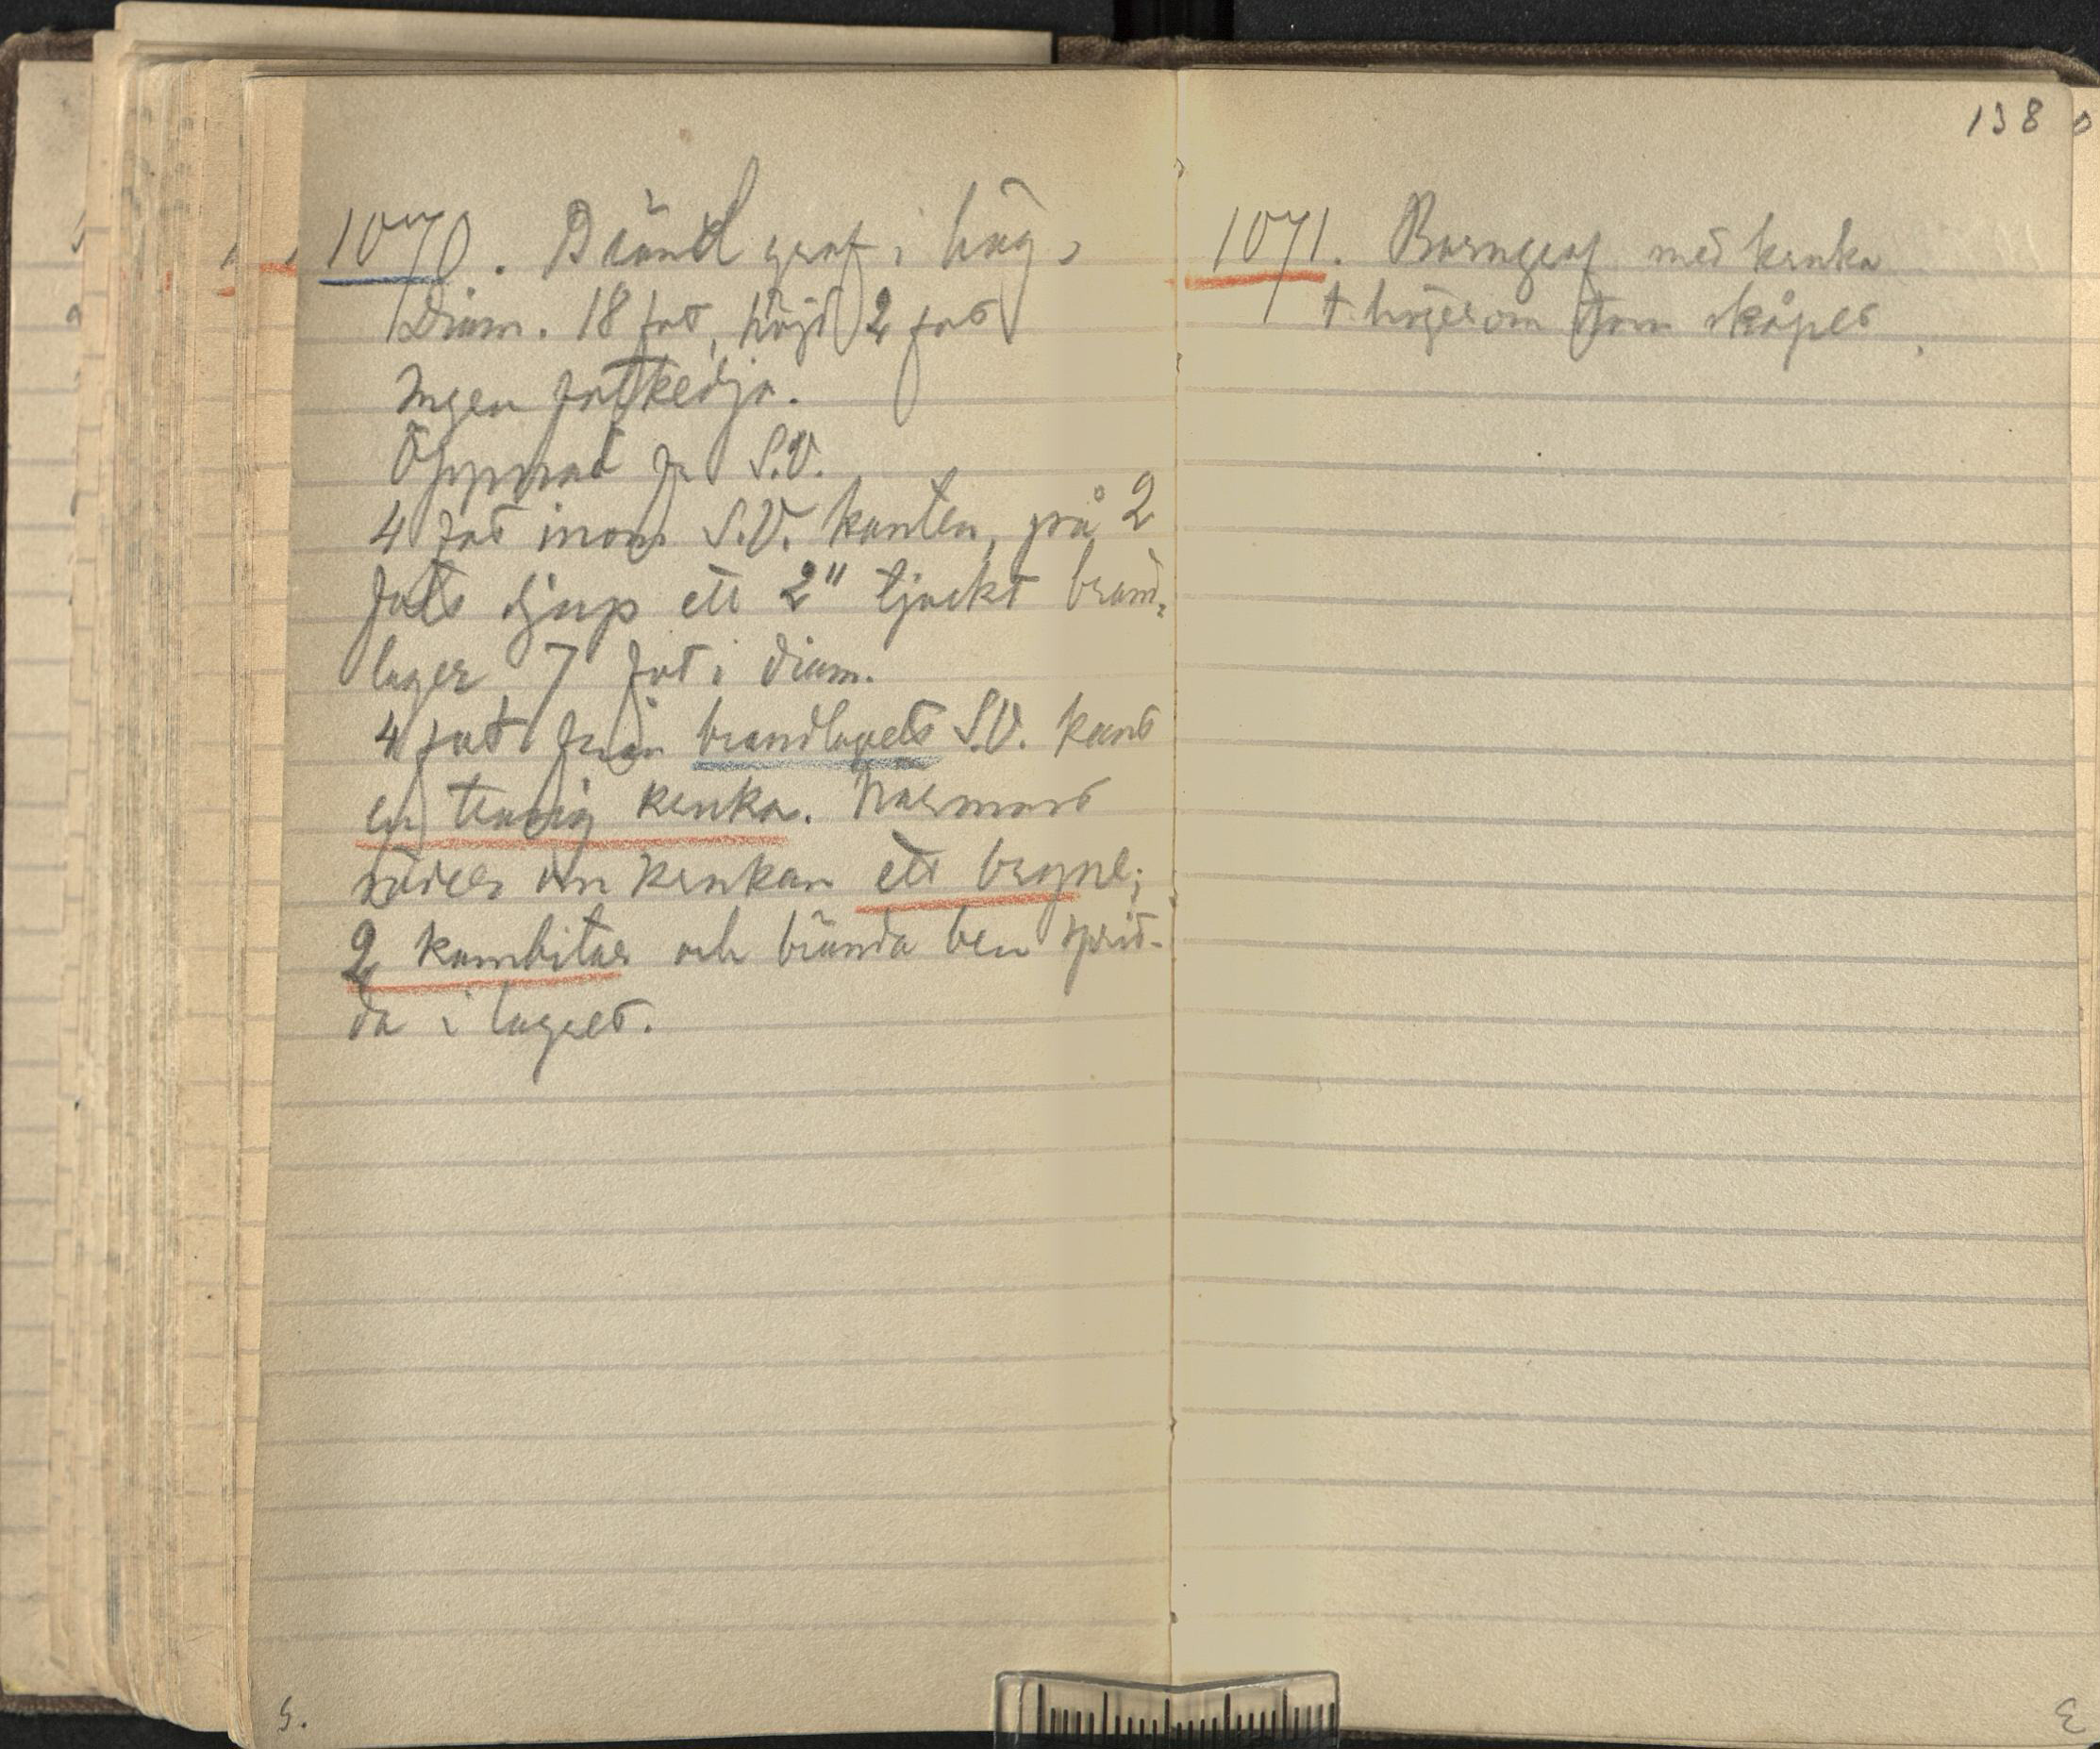 1070. Bränd graf i hög,
Diam. 18 fot, höjd 2 fot
Ingen fotkedja.
Öppnad fr S.V.
4 fot inom S.V. kanten, på 2
fots djup ett 2" tjockt brand-
lager 7 fot i diam.
4 fot från brandlagets S.V. kant
en trasig kruka. Närmast
söder om krukan ett bryne;
2 kambitar och brända ben sprid-
da i lagret.
5.
138
1071. Barngraf med kruka
t. höger om tom skåpet